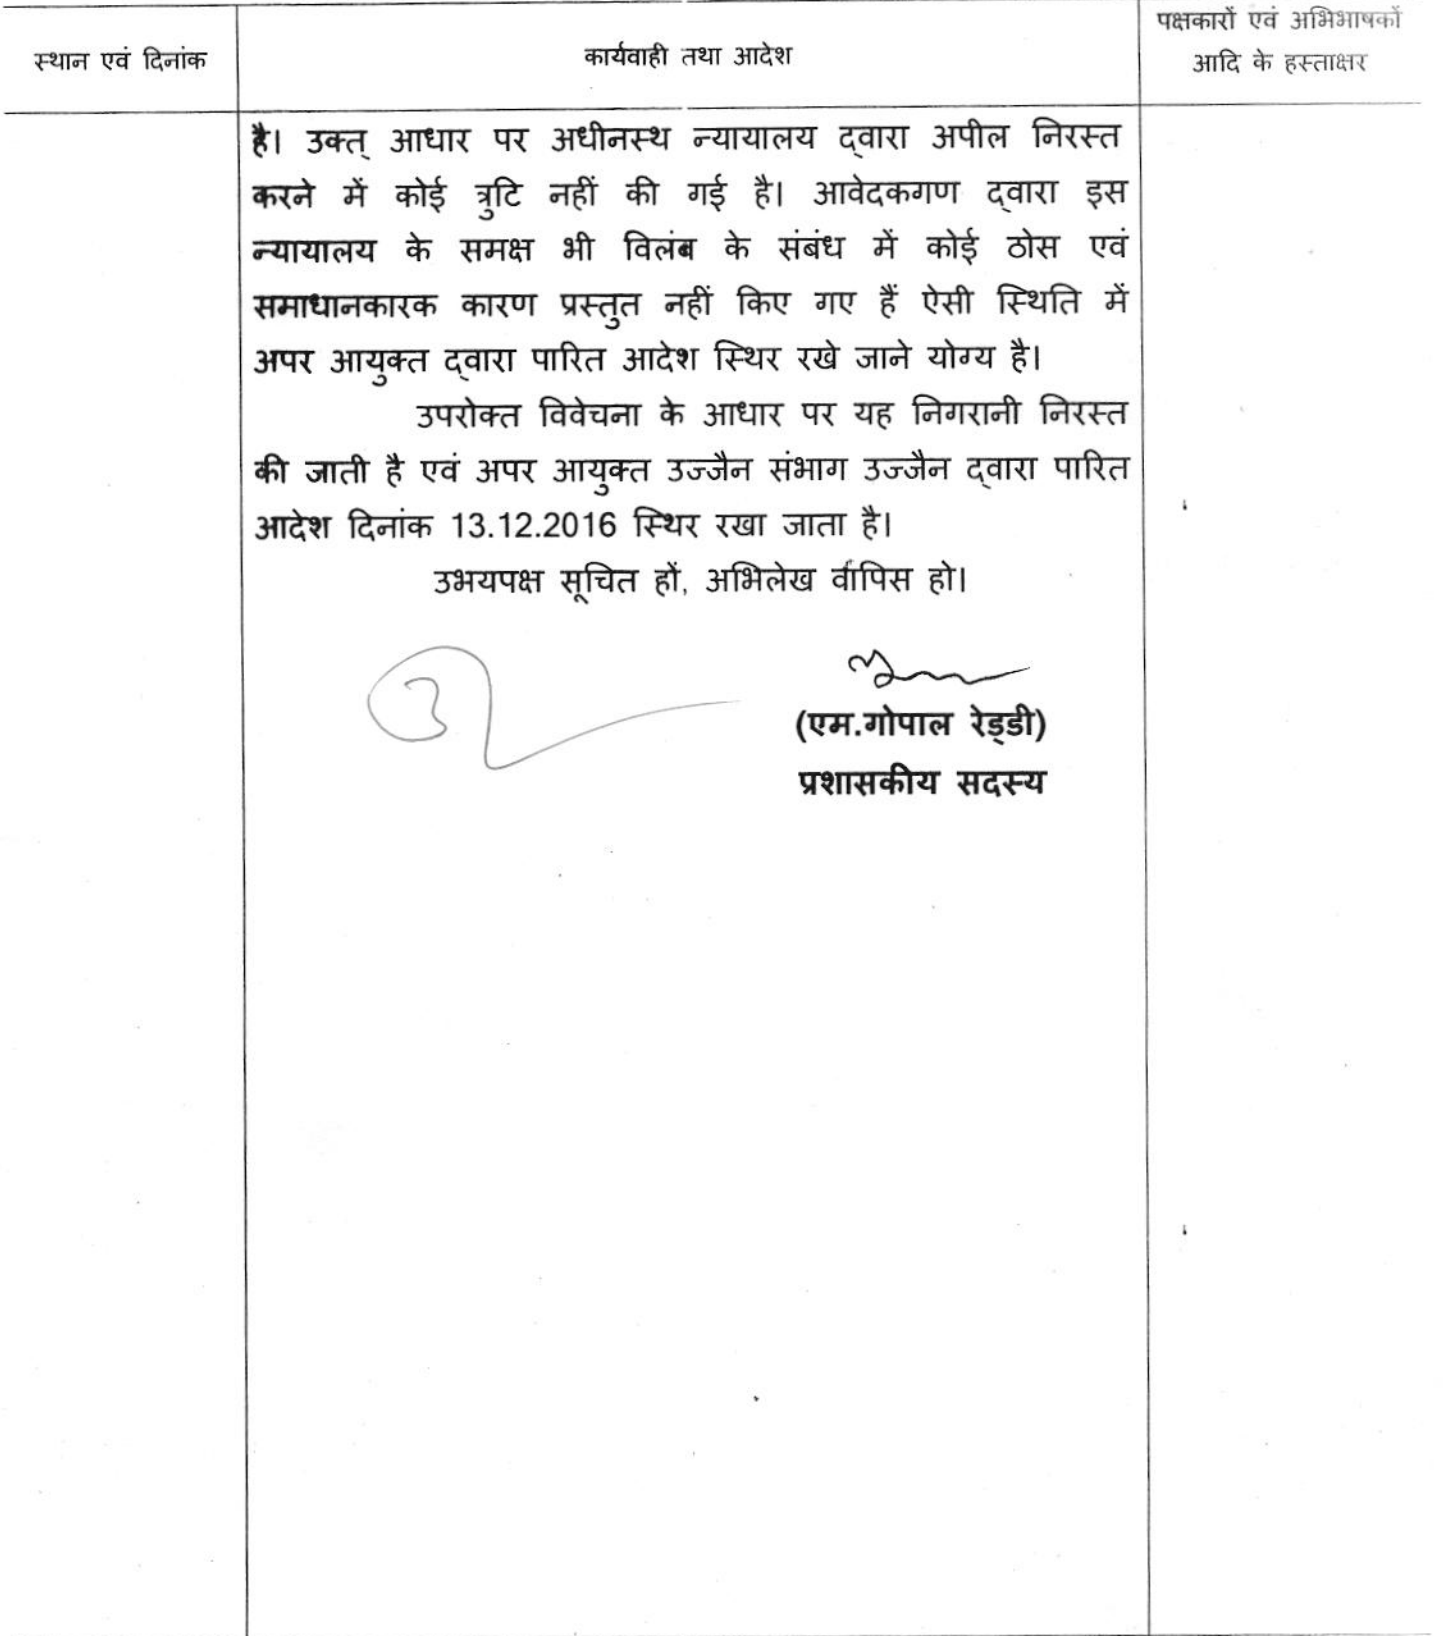 स्थान एवं दिनांक
कार्यवाही तथा आदेश
पक्षकारों एवं अभिभाषकों
आदि के हस्ताक्षर
है। उक्त् आधार पर अधीनस्थ न्यायालय द्वारा अपील निरस्त
करने में कोई त्रुटि नहीं की गई है। आवेदकगण द्वारा इस
न्यायालय के समक्ष भी विलंब के संबंध में कोई ठोस एवं
समाधानकारक कारण प्रस्तुत नहीं किए गए हैं ऐसी स्थिति में
अपर आयुक्त द्वारा पारित आदेश स्थिर रखे जाने योग्य है।
उपरोक्त विवेचना के आधार पर यह निगरानी निरस्त
की जाती है एवं अपर आयुक्त उज्जैन संभाग उज्जैन द्वारा पारित
आदेश दिनांक 13.12.2016 स्थिर रखा जाता है।
उभयपक्ष सूचित हों, अभिलेख वापिस हो।
(एम.गोपाल रेड्डी)
प्रशासकीय सदस्य